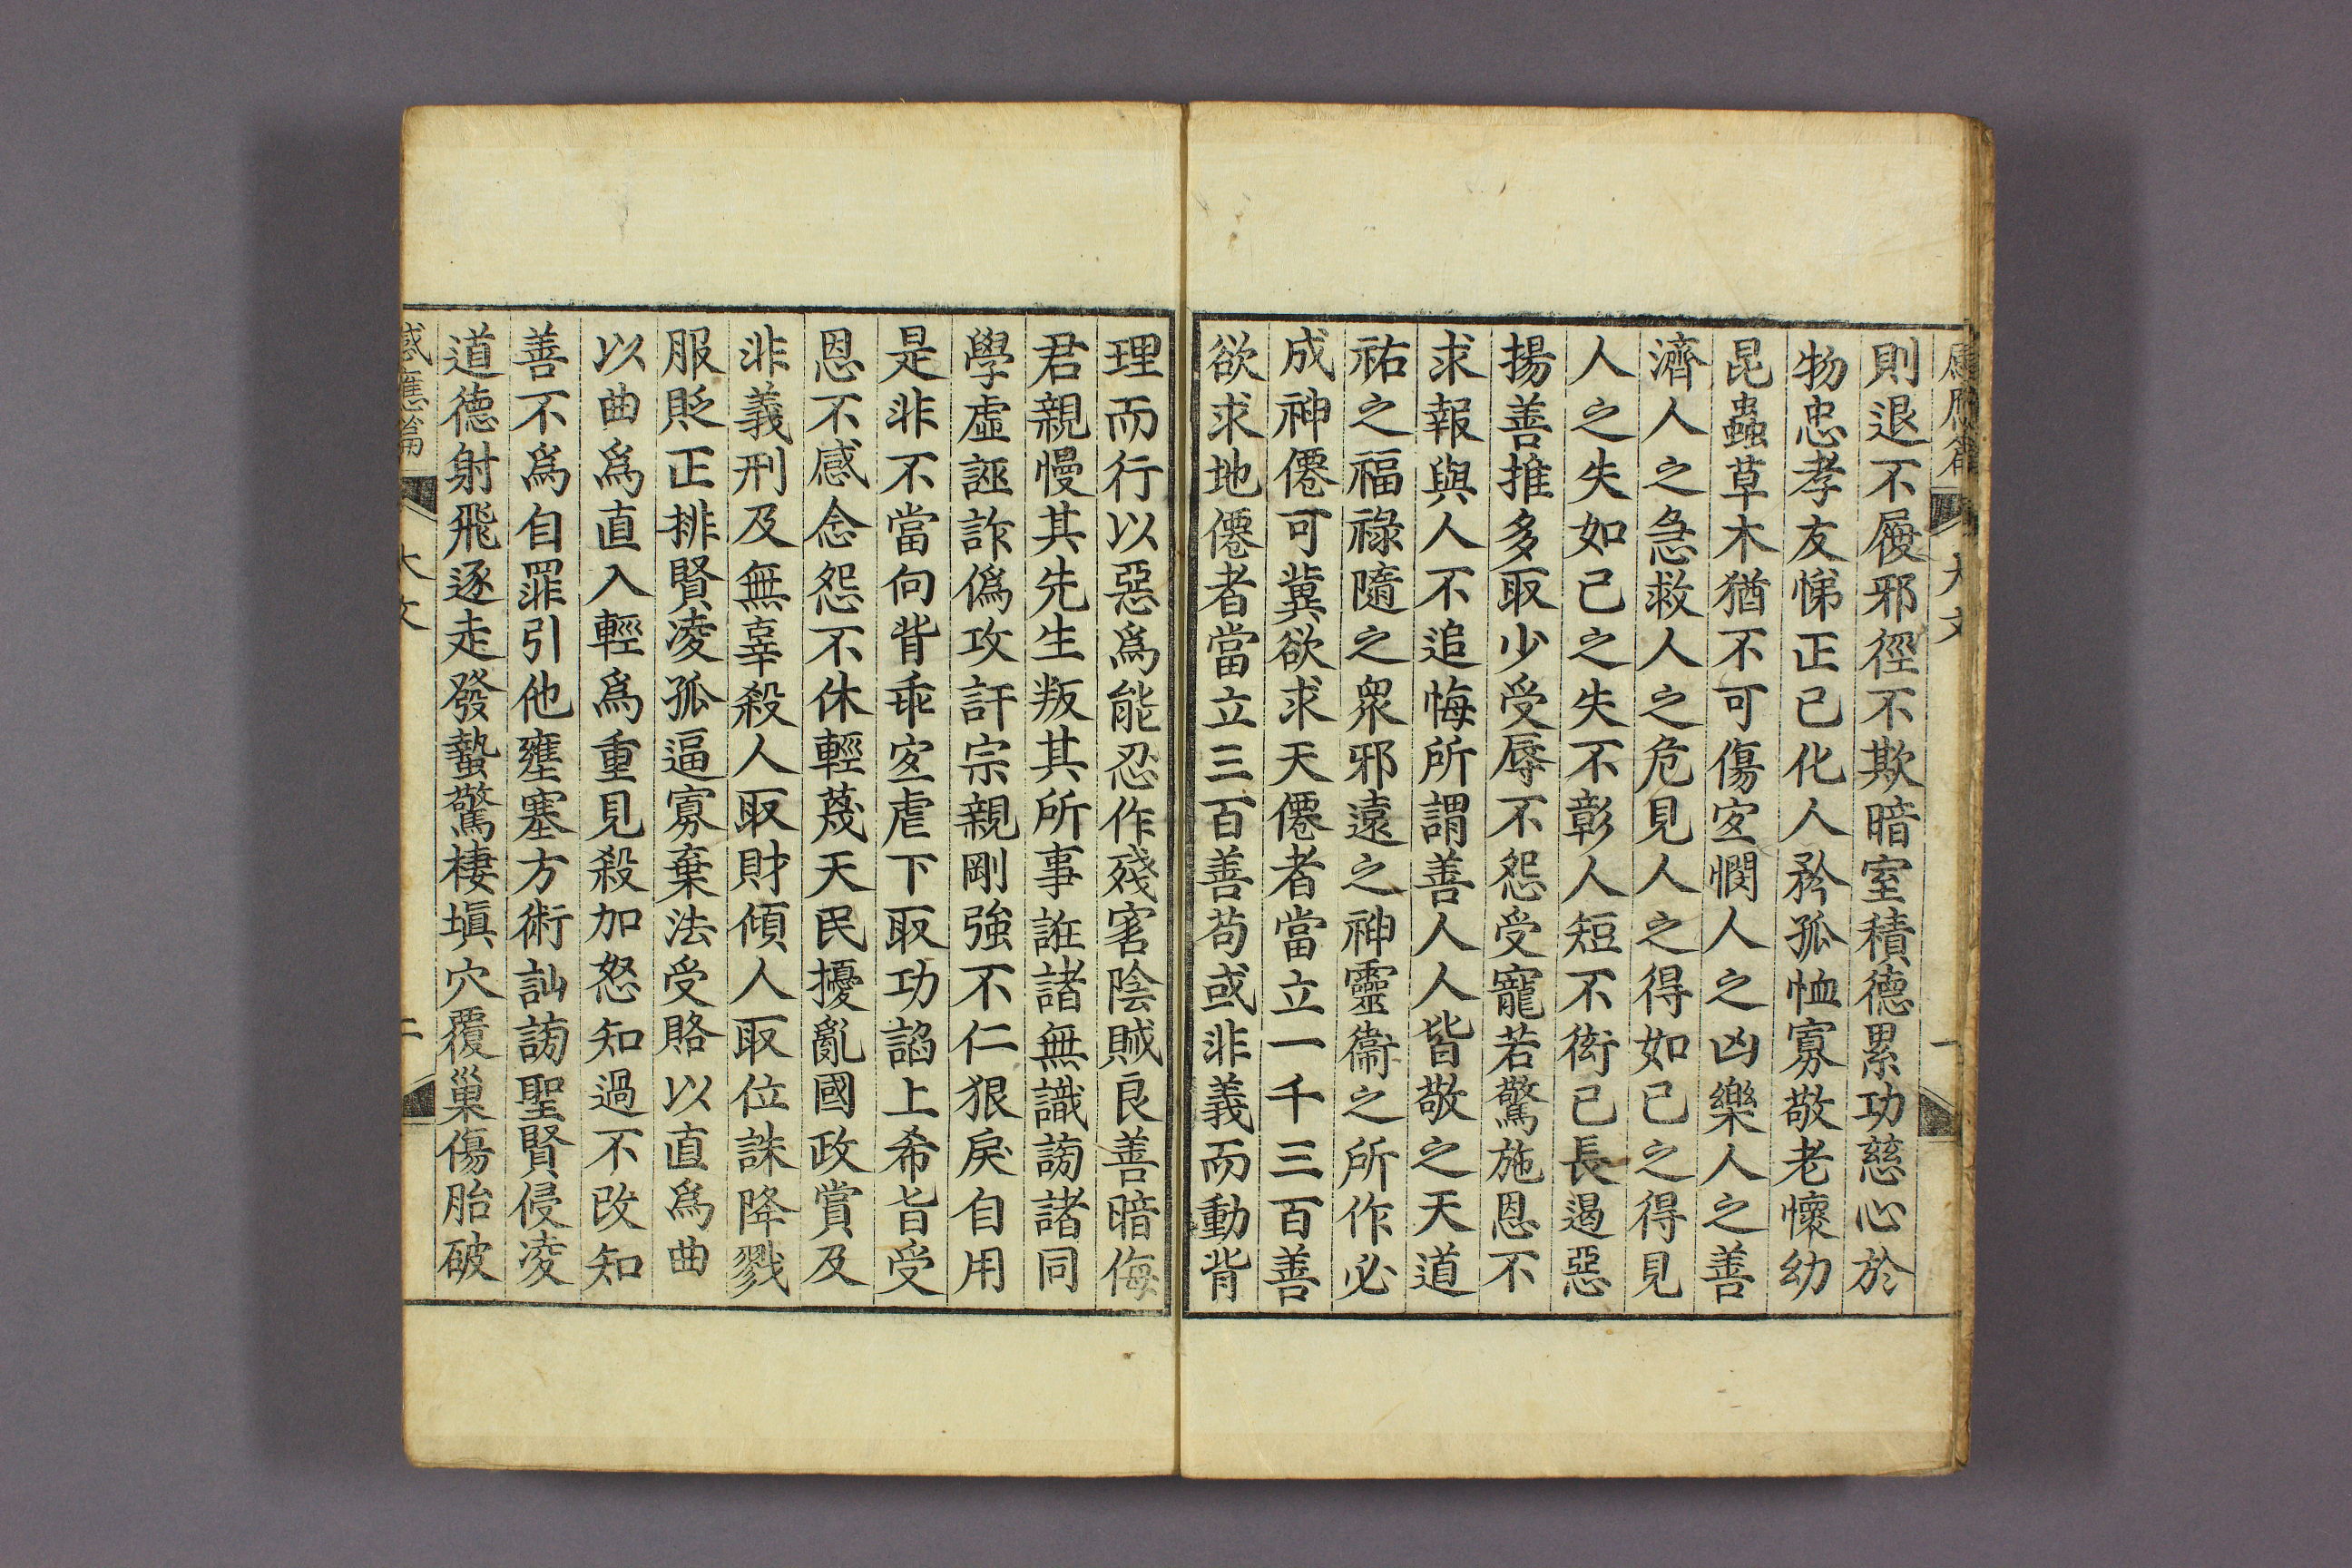 感應篇 大文 一
則退不履邪徑不欺暗室積德累功慈心於
物忠孝友悌正已化人矜孤恤寡敬老懷幼
昆蟲草木猶不可傷宐憫人之凶樂人之善
濟人之急救人之危見人之得如已之得見
人之失如已之失不彰人短不衒已長遏惡
揚善推多取少受辱不怨受寵若驚施恩不
求報與人不追悔所謂善人人皆敬之天道
祐之福祿隨之衆邪遠之神靈衞之所作必
成神僊可冀欲求天僊者當立一千三百善
欲求地僊者當立三百善苟或非義而動背
理而行以惡爲能忍作殘害陰賊良善暗侮
君親慢其先生叛其所事誑諸無識謗諸同
學虛誣詐僞攻訐宗親剛強不仁狠戾自用
是非不當向背乖宐虐下取功諂上希旨受
恩不感念怨不休輕蔑天民擾亂國政賞及
非義刑及無辜殺人取財傾人取位誅降戮
服貶正排賢凌孤逼寡棄法受賂以直爲曲
以曲爲直入輕爲重見殺加怒知過不改知
善不爲自罪引他壅塞方術訕謗聖賢侵凌
道德射飛逐走發蟄驚棲塡穴覆巢傷胎破
感應篇 大文 二